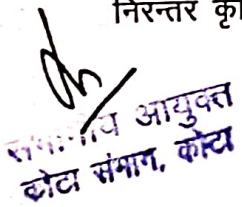 निरन्तर कृ
संभागीय आयुक्त
कोटा संभाग, कोटा